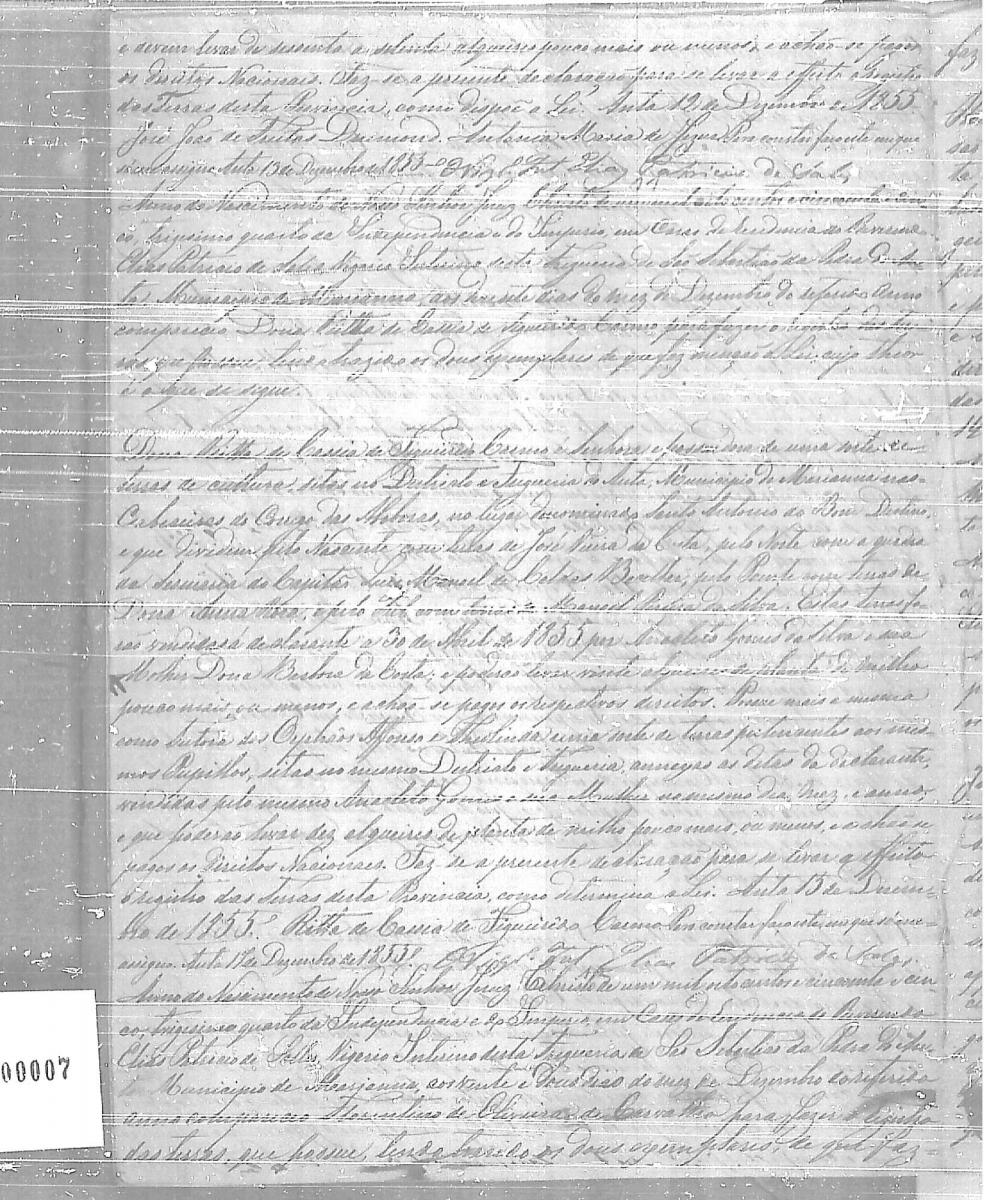 e devem levar de sessenta a setenta alqueires pouco mais ou menos, e achão-se pagos
os direitos Nacionaes. Faz-se a presente declaração para se levar a effeito o registro
das Terras desta Provincia, como dispõe a Lei. Anta 12 de Dezembro de 1855
José João de Freitas Antonia Maria de Jezus Para constar faço este em que
me assigno. Anta 13 de Dezembro de 1855 Elias Patricio de Salles
Anno do Nascimento de Nosso Senhor Jezus Christo de um mil oito centos e cincoenta e cin-
co, trigesimo quarto da Independencia e do Imperio, em Caza de rezidencia do Reverendo
Elias Patricio de Salles Vigario Interino desta Freguezia de São Sebastião da Pedra do An-
ta Municipio de Marianna, aos vinte dias do mez de Dezembro do referido anno
compareceo Dona Ritta de Cassia de Figueiredo Carmo para fazer o registro das ter-
ras que possue, tendo trazido os dous exemplares de que faz menção a Lei, cujo theor
é o que se segue.
Dona Ritta de Cassia de Figueiredo Carmo é senhora e possuidora de uma sorte de
terras de cultura, sitas no Destricto e Freguezia do Anta, Municipio de Marianna nas
Cabeceiras do Corrego das Aboboras, no lugar denominado Santo Antonio do Bom Destino,
e que dividem pelo Nascente com terras de José Vieira da Costa, pelo Norte com a quadra
da Sesmaria do Capitão Luis Manoel de Caldas Bacellar, pelo Poente com terras de
Dona Anna Roza, e pelo Sul com terras de Manoel da Silva. Estas terras fo-
rão vendidas á declarante a 30 de Abril de 1855 por Anacleto Gomes da Silva e sua
Molher Dona Barbara da Costa; e poderão levar vinte alqueires de planta de milho
pouco mais, ou menos, e achão-se pagos os respectivos direitos. Possue mais a mesma
como tutora dos Orphãos Affonso e uma sorte de terras pertencentes aos mes-
mos Pupillos, sitas no mesmo Destricto e Freguezia, annexas ás ditas da declarante,
vendidas pelo mesmo Anacleto Gomes e sua Mulher no mesmo dia, mez, e anno,
e que poderão levar dez alqueires de planta de milho pouco mais, ou menos, e achão-se
pagos os Direitos Nacionaes. Faz-se a presente declaração para se levar a effeito
o registro das terras desta Provincia, como determina a Lei. Anta 13 de Dezem-
bro de 1855. Ritta de Cassia de Figueiredo Carmo Para constar faço este, em que me
assigno. Anta de Dezembro de 1855 Elias Patricio de Salles
Anno do Nascimento de Nosso Senhor Jezus Christo de um mil oito centos e cincoenta e cin-
co, trigesimo quarto da Independencia e do Imperio, em Caza de rezidencia do Reverendo
Elias Patricio de Salles, Vigario Interino desta Freguezia de São Sebastião da Pedra do An-
ta Municipio de Marianna, aos vinte e dous dias do mez de Dezembro do referido
anno compareceo Florentino de Oliveira de Carvalho para fazer o registro
das terras, que possue, tendo trazido os dous exemplares, de que faz
00007